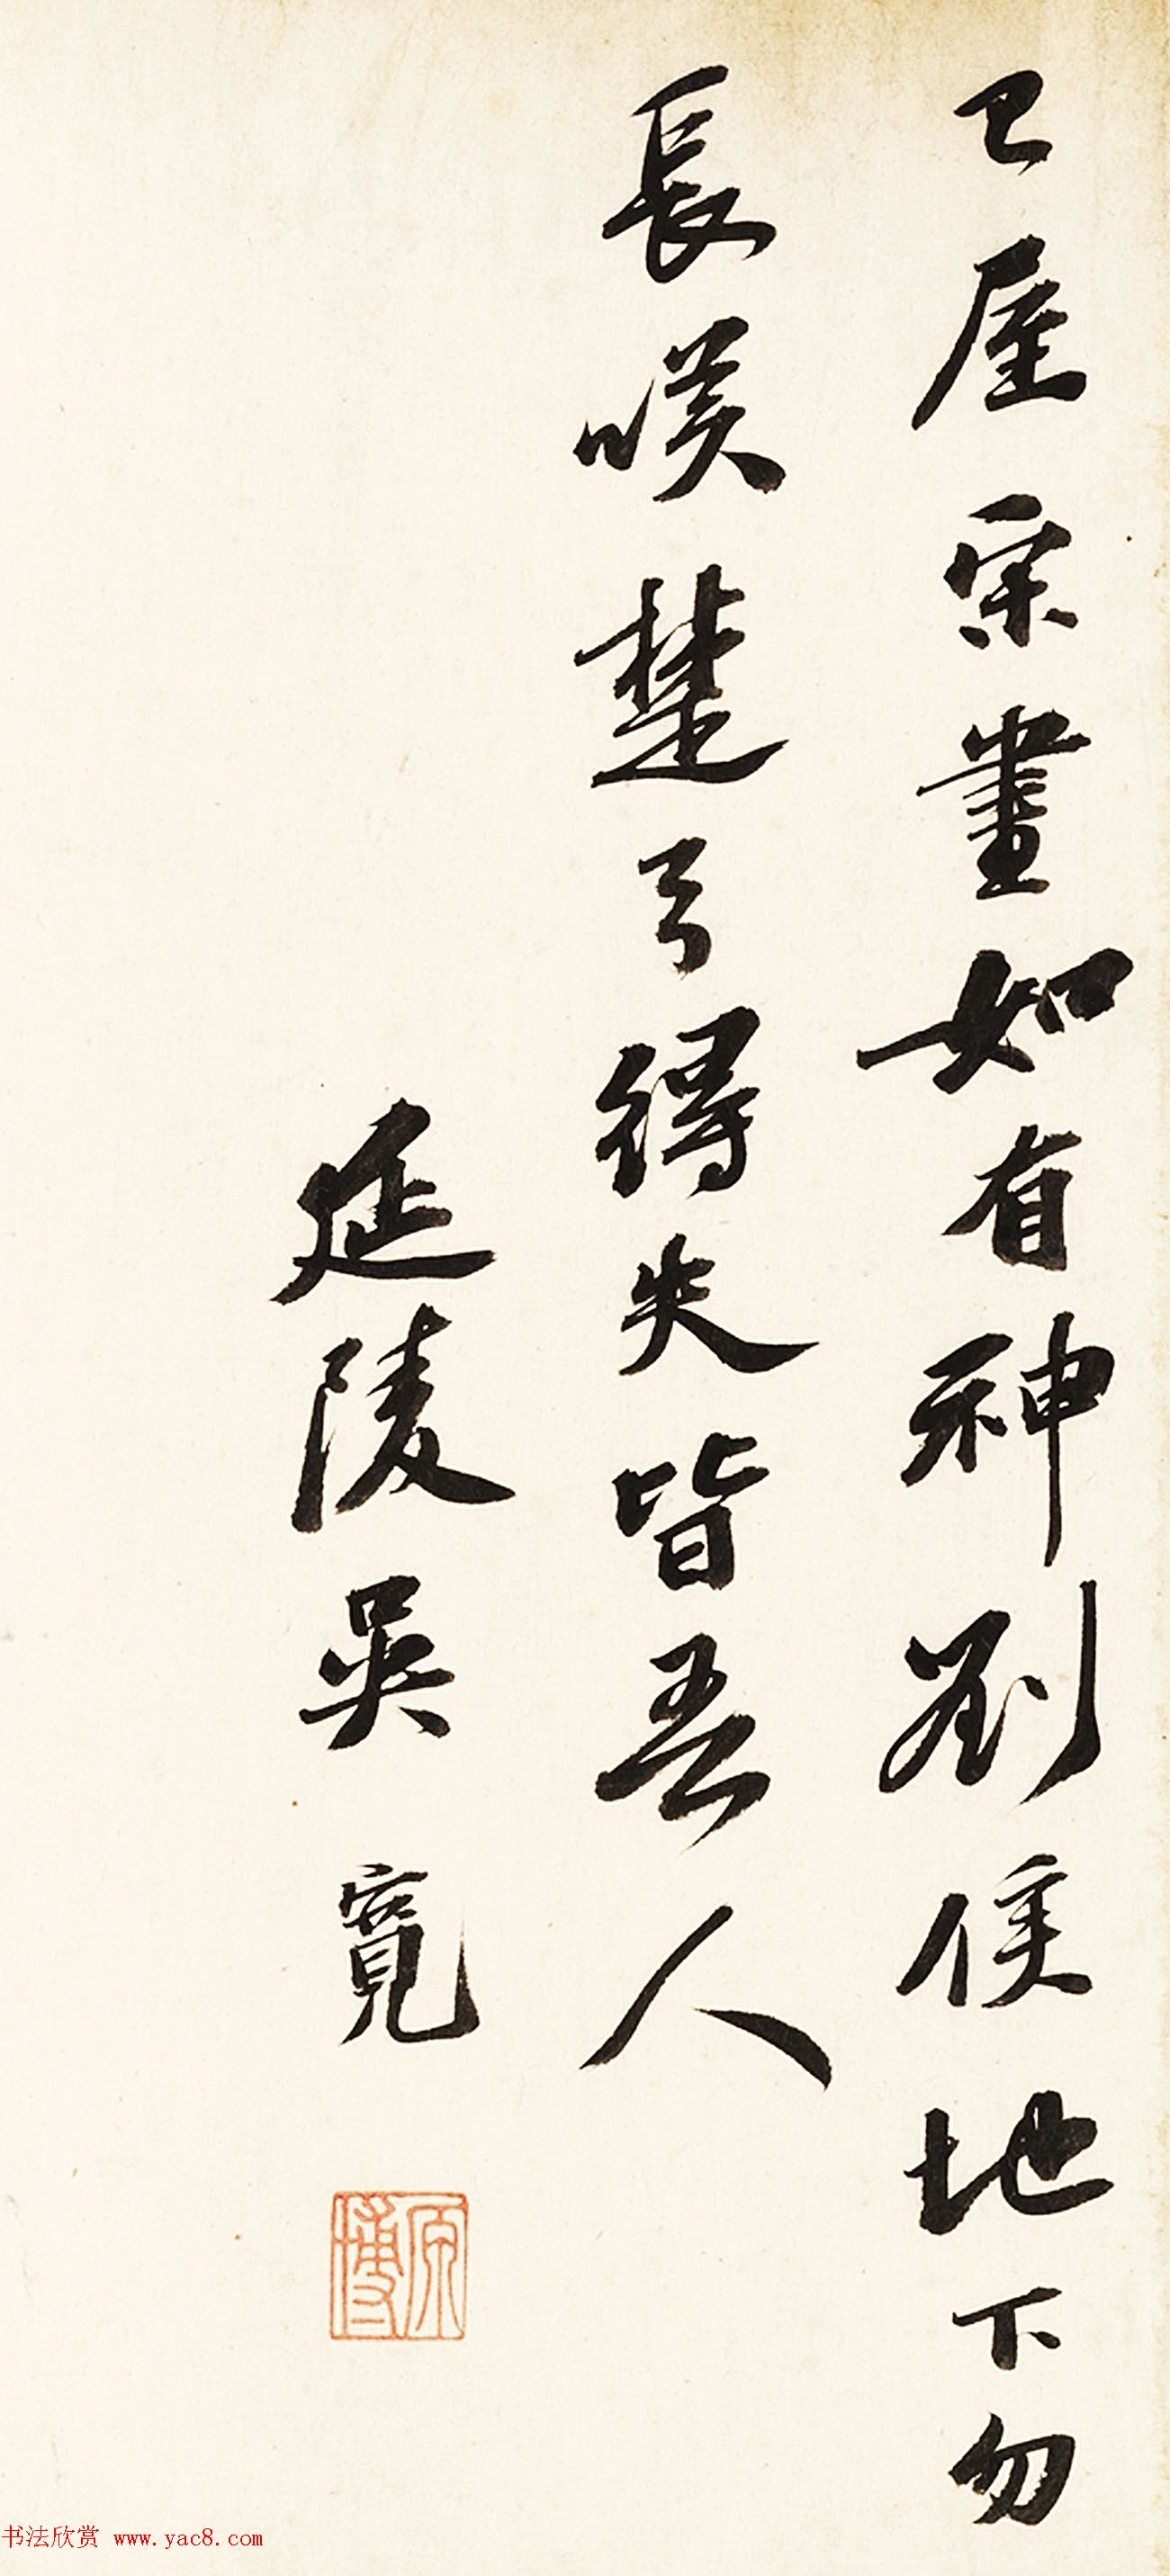 已屋宋畫如有神劉侯地下勿
長嘆楚弓得失皆吾人
延陵吳寬
原博
书法欣赏 www.yac8.com